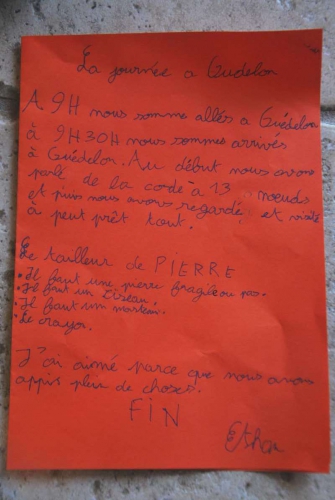 La journée a Guédelon
A 9H nous somme allés a Guédelon
à 9H30H nous sommes arrivés
à Guédelon. Au début nous avons
parlé de la corde à 13 nœuds
et puis nous avons regardé, et visité
à peut prêt tout.
Le tailleur de PIERRE
• Il faut une pierre fragile ou pas.
• Il faut un ciseau.
• Il faut un marteau.
• Le crayon.
J'ai aimé parce que nous avons
appis plein de choses.
FIN
Ethan